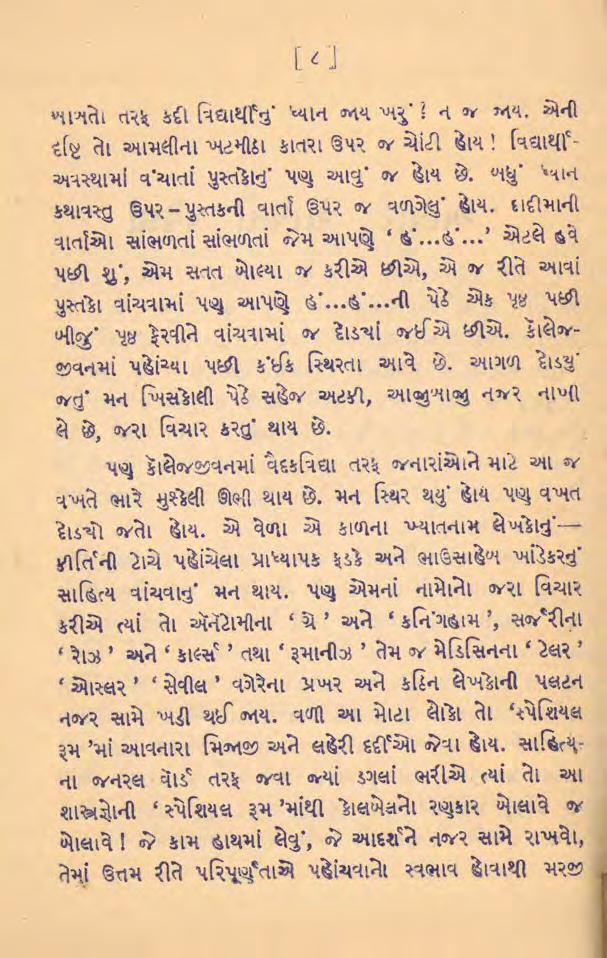 [ ૮ ]
બાબતો તરફ કદી વિદ્યાર્થીનું ધ્યાન જાય ખરું ? ન જ જાય. એની
દૃષ્ટિ તો આમલીના ખટમીઠા કાતરા ઉપર જ ચોંટી હોય ! વિદ્યાર્થી-
અવસ્થામાં વંચાતાં પુસ્તકોનું પણ આવું જ હોય છે. બધું ધ્યાન
કથાવસ્તુ ઉપર – પુસ્તકની વાર્તા ઉપર જ વળગેલું હોય. દાદીમાની
વાર્તાઓ સાંભળતાં સાંભળતાં જેમ આપણે ‘ હં...હં...’ એટલે હવે
પછી શું, એમ સતત બોલ્યા જ કરીએ છીએ, એ જ રીતે આવાં
પુસ્તકો વાંચવામાં પણ આપણે હં...હં...ની પેઠે એક પૃષ્ઠ પછી
બીજું પૃષ્ઠ ફેરવીને વાંચવામાં જ દોડ્યાં જઈએ છીએ. કૉલેજ-
જીવનમાં પહોંચ્યા પછી કંઈક સ્થિરતા આવે છે. આગળ દોડ્યું
જતું મન ખિસકોલી પેઠે સહેજ અટકી, આજુબાજુ નજર નાખી
લે છે, જરા વિચાર કરતું થાય છે.
પણ કૉલેજજીવનમાં વૈદકવિદ્યા તરફ જનારાંઓને માટે આ જ
વખતે ભારે મુશ્કેલી ઊભી થાય છે. મન સ્થિર થયું હોય પણ વખત
દોડ્યો જતો હોય. એ વેળા એ કાળના ખ્યાતનામ લેખકોનું—
કીર્તિની ટોચે પહોંચેલા પ્રાધ્યાપક ફડકે અને ભાઉસાહેબ ખાંડેકરનું
સાહિત્ય વાંચવાનું મન થાય. પણ એમનાં નામોનો જરા વિચાર
કરીએ ત્યાં તો ઍનૅટોમીના ‘ ગ્રે ’ અને ‘ કનિંગહામ ’, સર્જરીના
‘ રોઝ ’ અને ‘ કાર્લ્સ ’ તથા ‘ રૂમાનીઝ ’ તેમ જ મેડિસિનના ‘ ટેલર ’
‘ ઓસ્લર ’ ‘ સેવીલ ’ વગેરેના પ્રખર અને કઠિન લેખકોની પલટન
નજર સામે ખડી થઈ જાય. વળી આ મોટા લોકો તો ‘સ્પેશિયલ
રૂમ ’માં આવનારા મિજાજી અને લહેરી દર્દીઓ જેવા હોય. સાહિત્ય-
ના જનરલ વૉર્ડ તરફ જવા જ્યાં ડગલાં ભરીએ ત્યાં તો આ
શાસ્ત્રજ્ઞોની ‘ સ્પેશિયલ રૂમ ’માંથી કોલબેલનો રણકાર બોલાવે જ
બોલાવે ! જે કામ હાથમાં લેવું, જે આદર્શને નજર સામે રાખવો,
તેમાં ઉત્તમ રીતે પરિપૂર્ણતાએ પહોંચવાનો સ્વભાવ હોવાથી મરજી